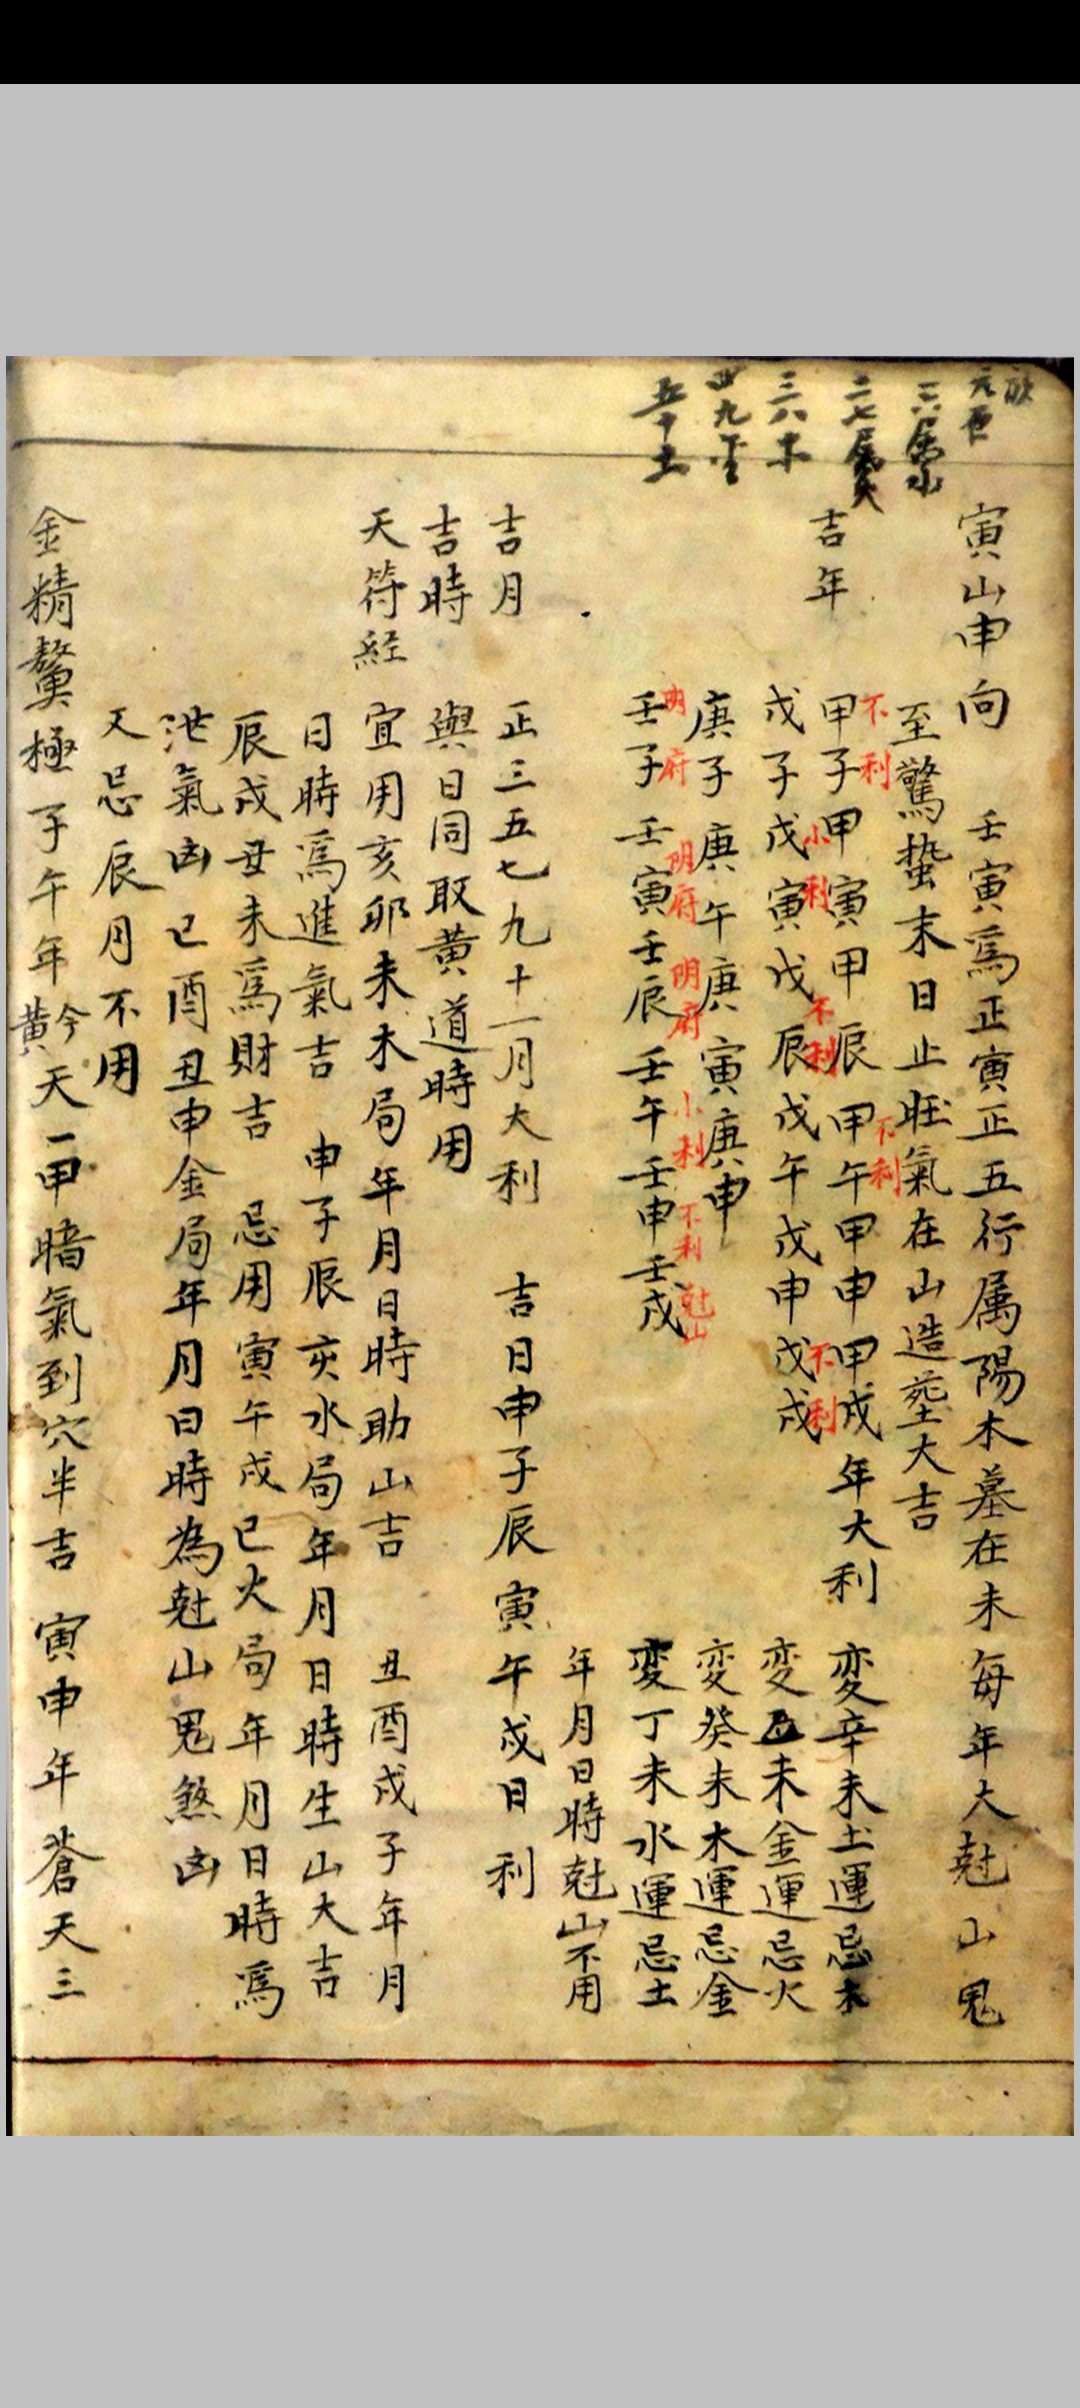 元
一六属水
二七属火
三八木
四九金
五十土
寅山申向 壬寅爲正寅正五行属陽木墓在未每年大尅山鬼
至驚蟄末日止旺氣在山造塟大吉
吉年 甲子甲寅甲辰甲午甲申甲戌年大利 变辛未土運忌木
不利 小利 不利 不利 不利
戊子戊寅戊辰戊午戊申戊戌 变乙未金運忌火
庚子庚午庚寅庚申 变癸未木運忌金
明府 明府 明府 小利 不利 尅山
壬子壬寅壬辰壬午壬申壬戌 变丁未水運忌土
年月日時尅山不用
吉月 正三五七九十一月大利 吉日申子辰寅午戌日利
吉時 與日同取黄道時用
天符経 宜用亥卯未木局年月日時助山吉 丑酉戌子年月
日時爲進氣吉 申子辰亥水局年月日時生山大吉
辰戌丑未爲財吉 忌用寅午戌巳火局年月日時爲
泄氣凶 巳酉丑申金局年月日時為尅山鬼煞凶
又忌辰月不用
金精鰲極 子午年今黄天一甲暗氣到穴半吉 寅申年蒼天三